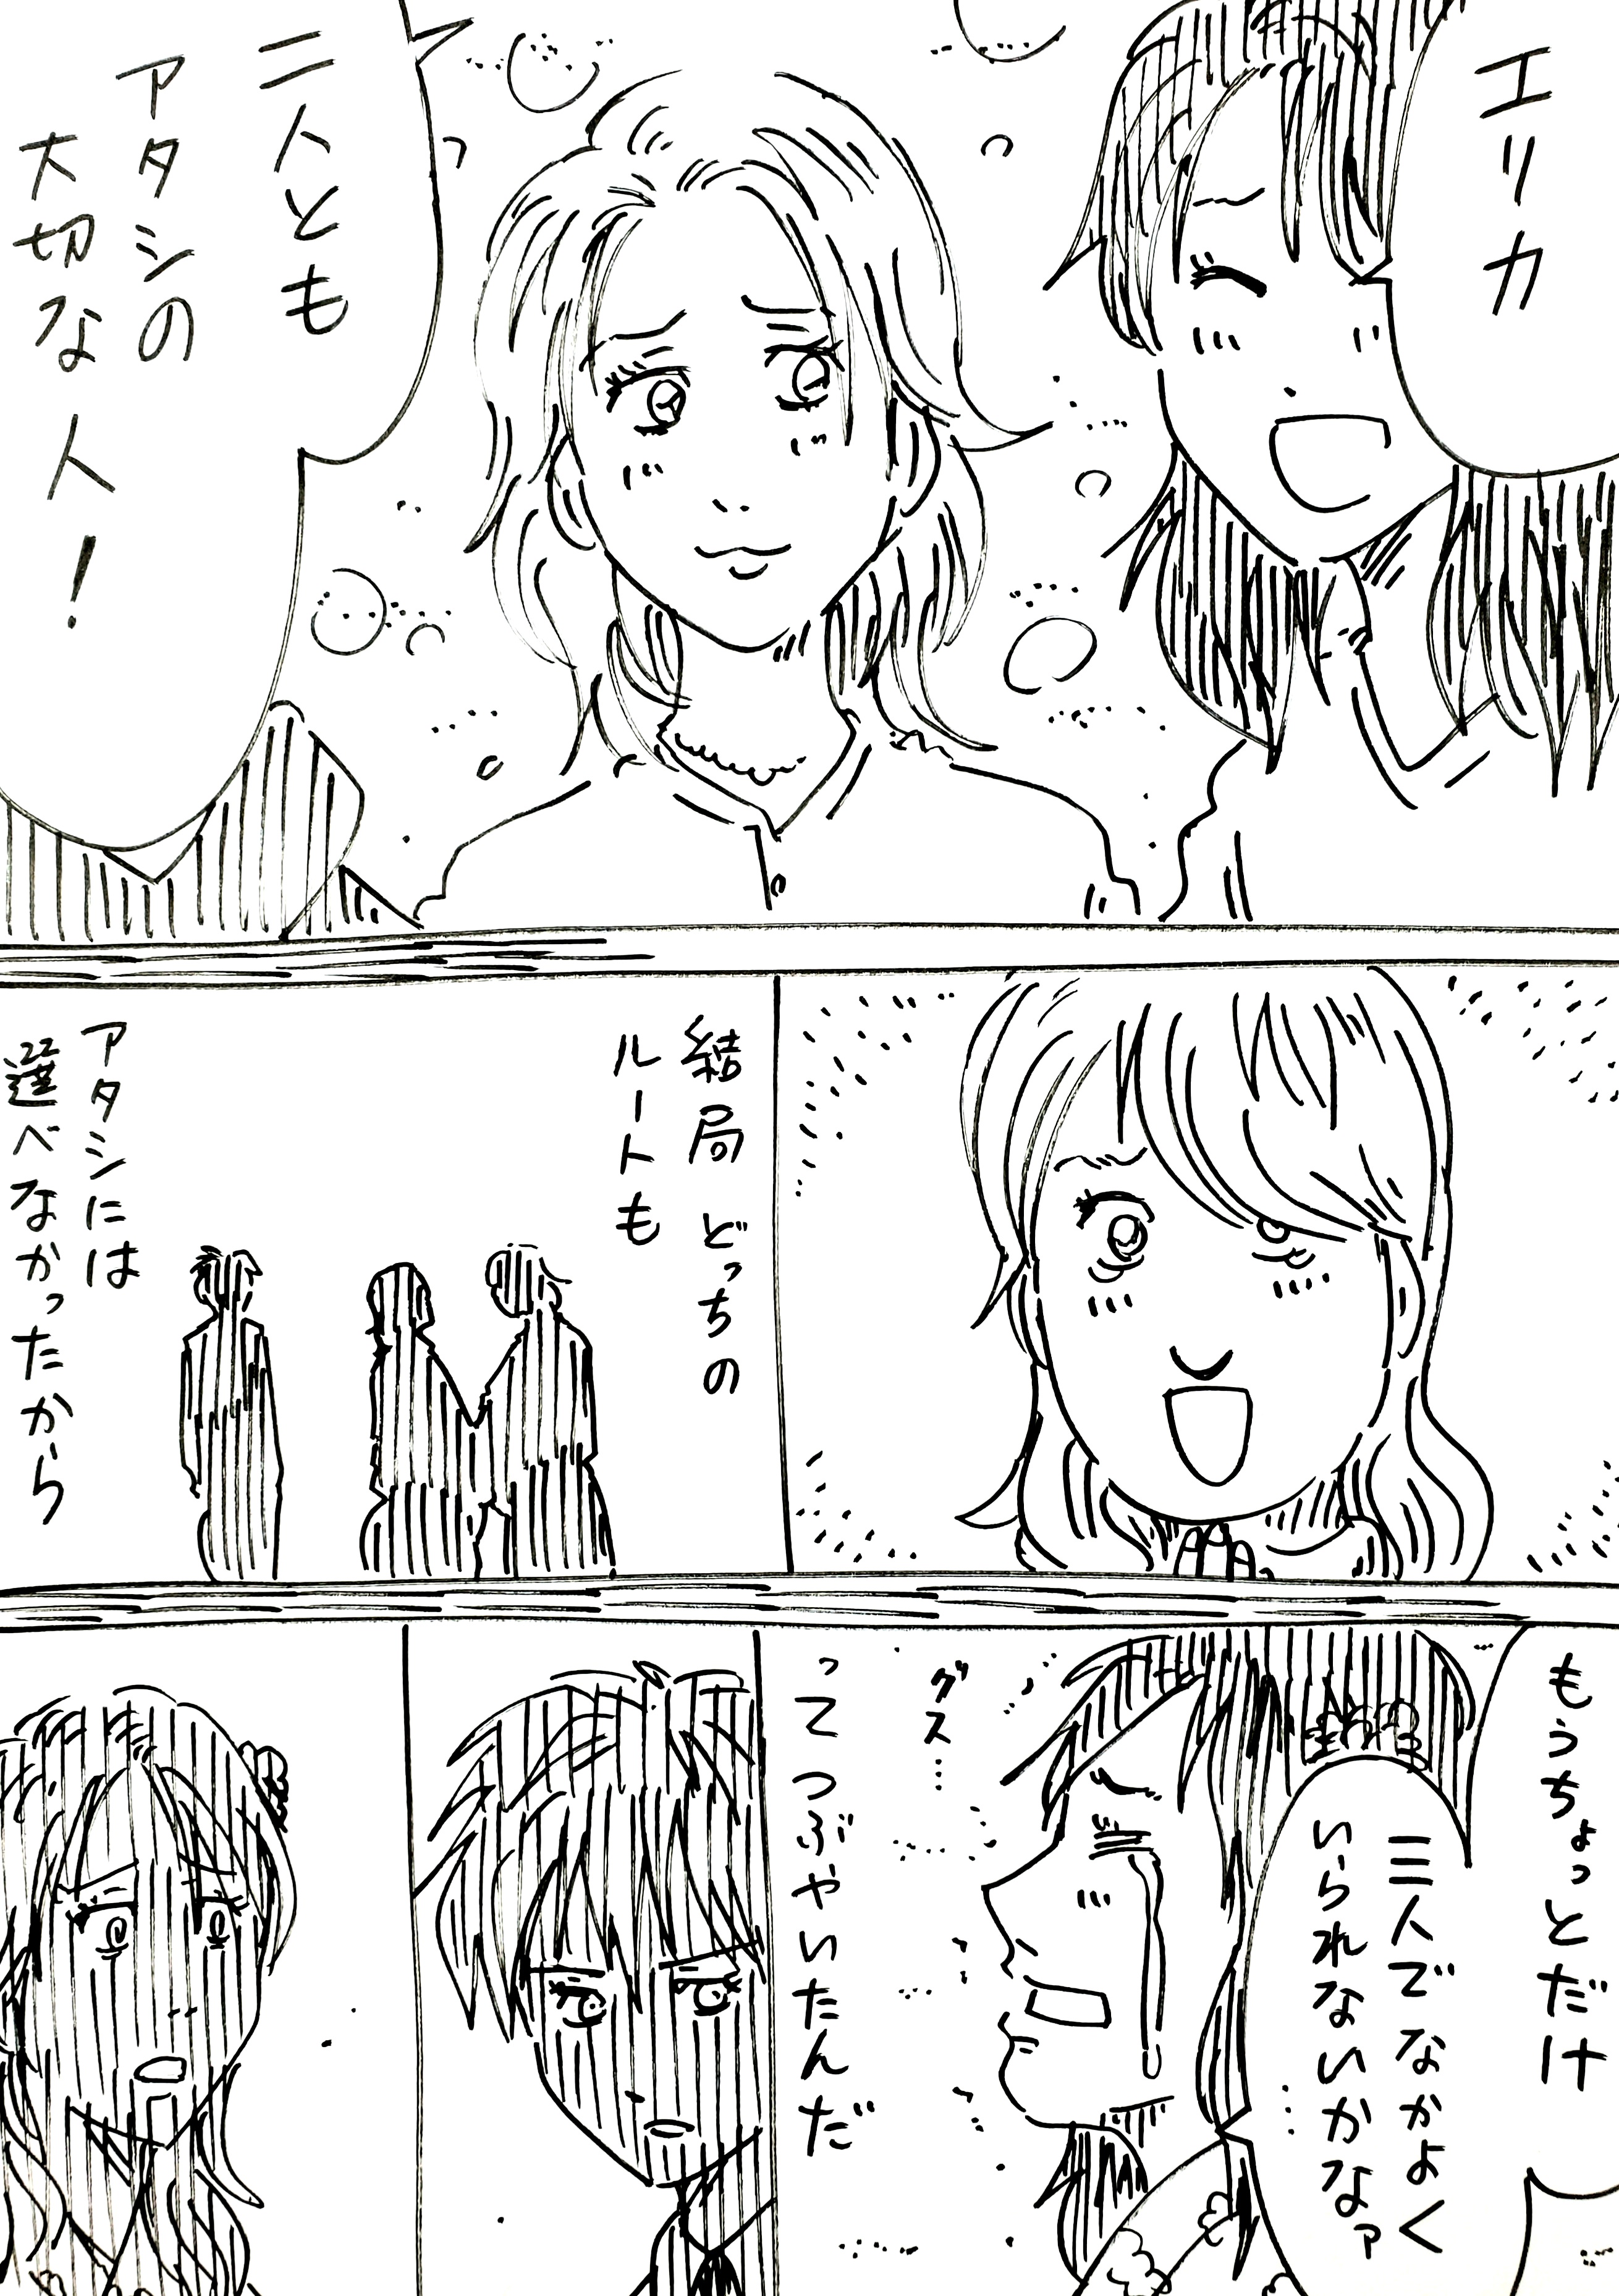 エリカ
二人とも
アタシの
大切な人!
結局どっちの
ルートも
アタシには
選べなかったから
もうちょっとだけ
三人でなかよく
いられないかなァ
…
グス…
ってつぶやいたんだ